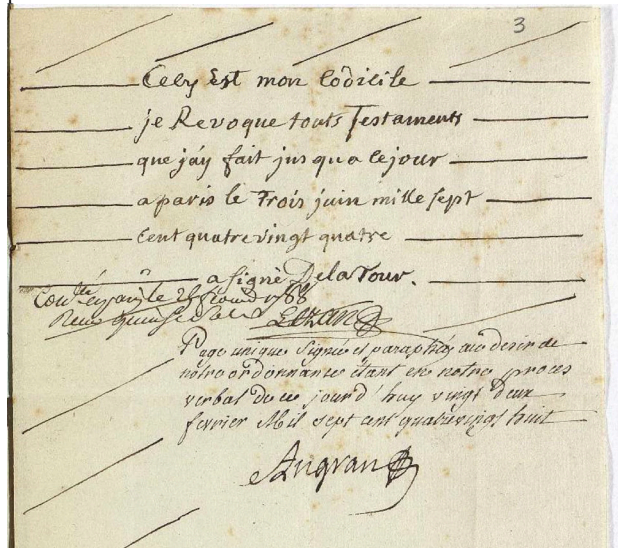 3
Cecy Est mon Codicile
je Revoque touts Testaments
que jay fait jusqua cejour
a paris le Trois juin mille sept
Cent quatre vingt quatre
a Signé Delatour.
Con.lé a paris le 25 1788
Reçu quinze sols Lezan
Page unique Signée et paraphée au desir de
notre ordonnance étant en notre proces
verbal de ce jourd'huy vingt deux
fevrier Mil sept cent quatrevingt huit
Angran